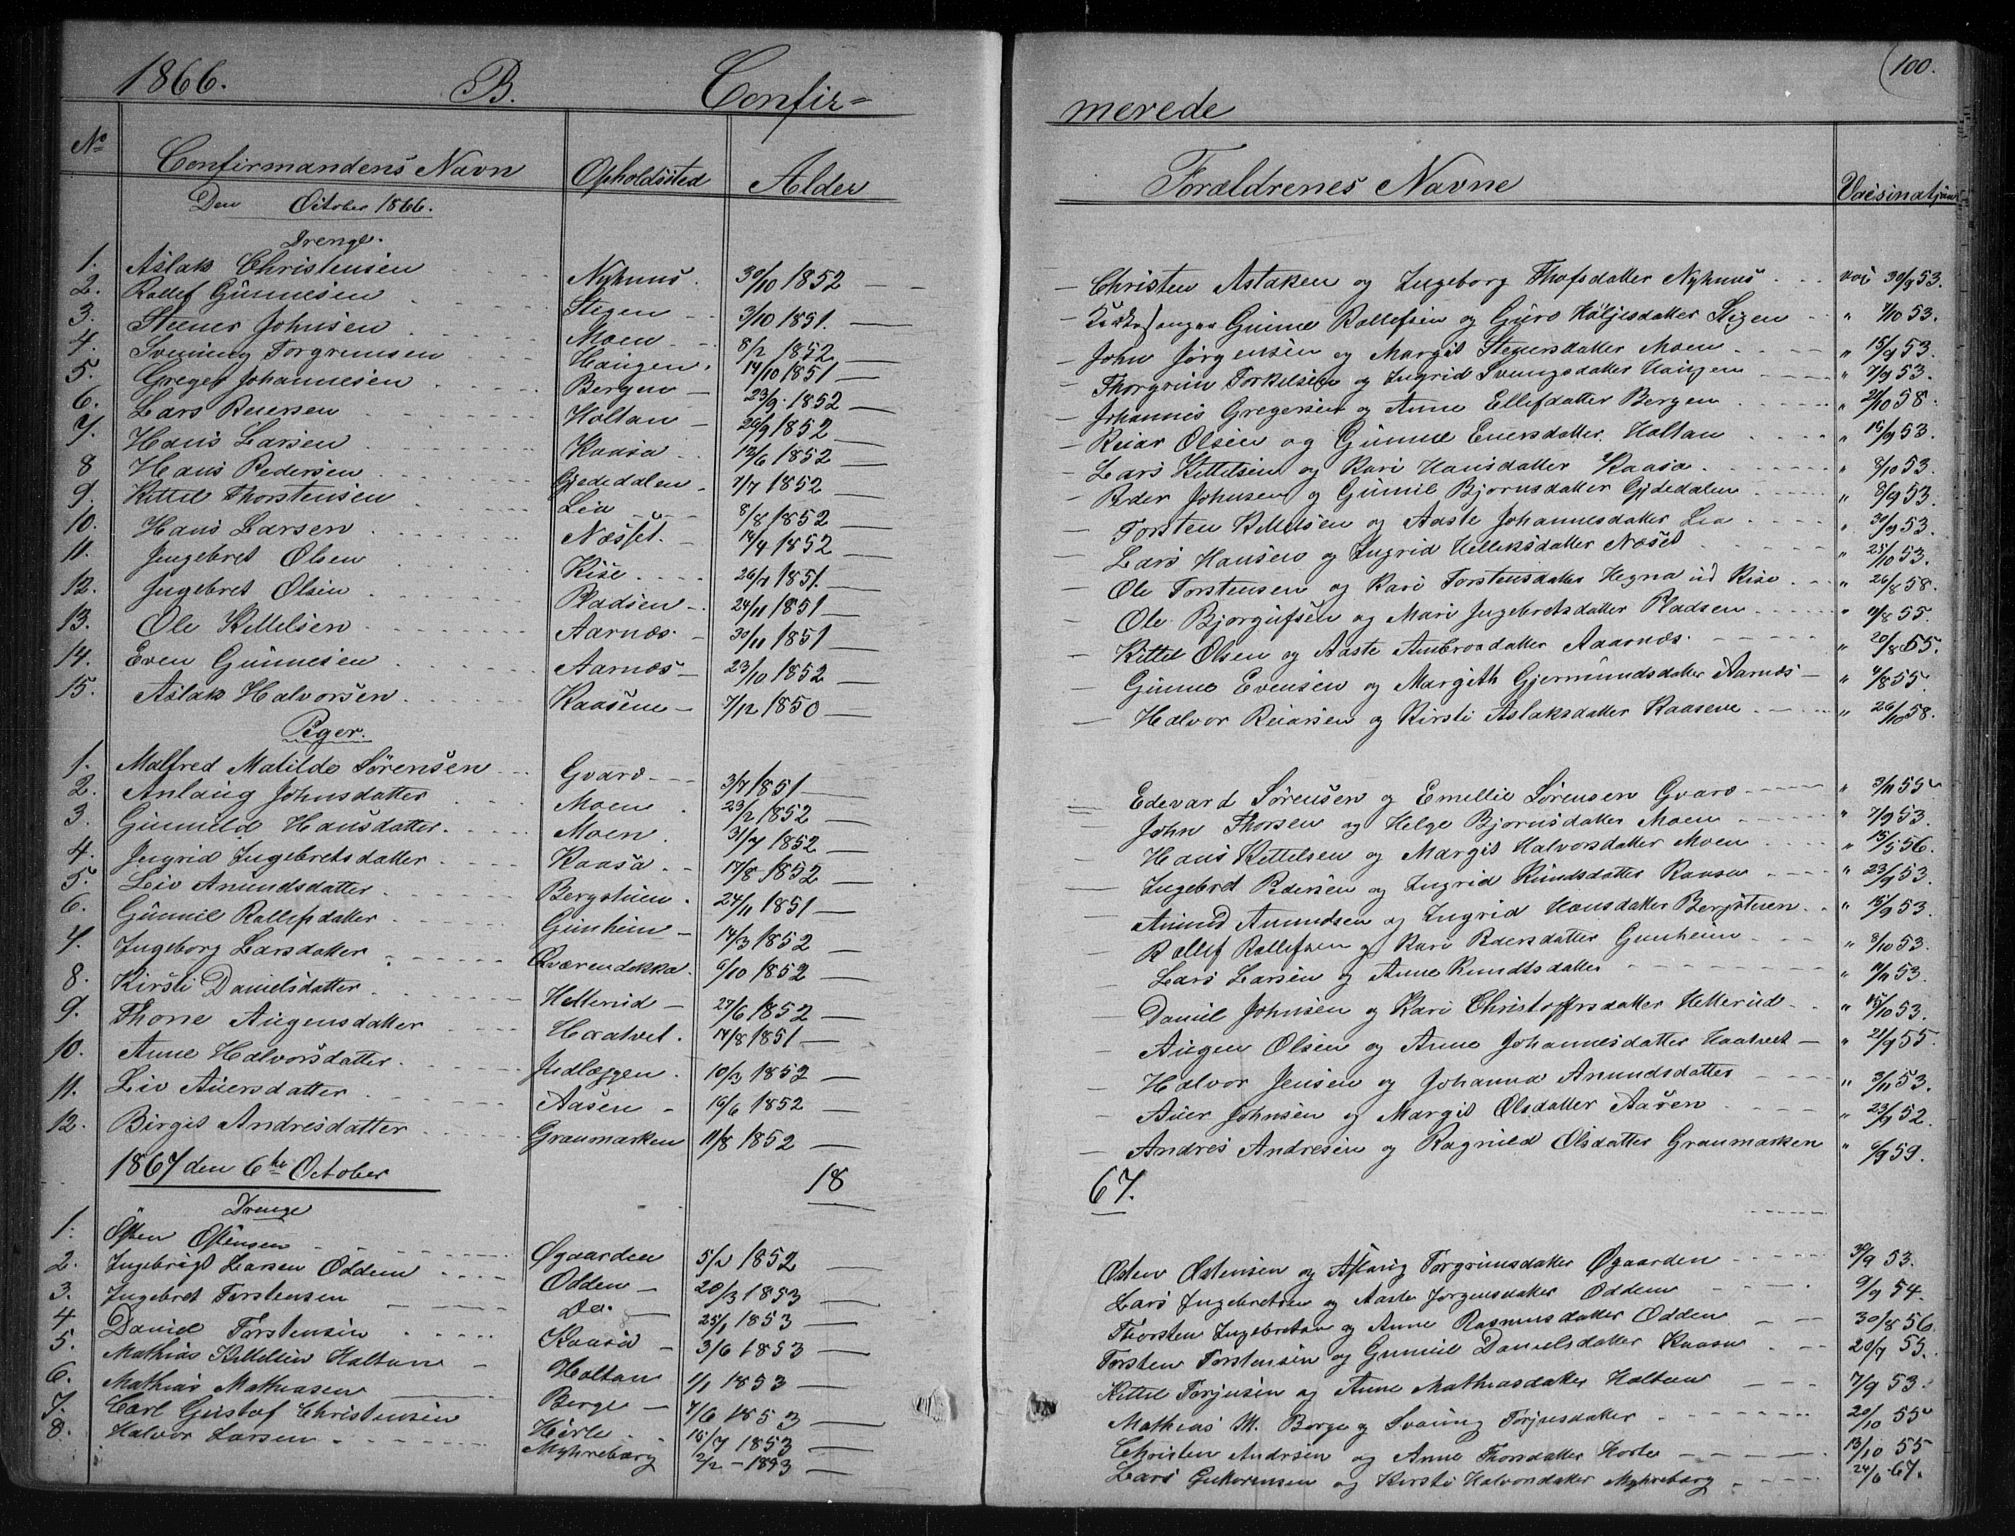 1866. B. Confir=
No Confirmandens Navn Opholdssted Alder
Den October 1866.
Drenge.
1. Aslak Christensen Nyhuus. 30/10 1852
2. Rollef Gunnesen Stigen 3/10 1851.
3. Stener Johnsen Moen 8/2 1852
4. Svenung Torgrimsen Haugen. 14/10 1851
5. Greger Johannesen Bergen 23/9 1852
6. Lars Reiersen Holtan 20/9 1852
7. Hans Larsen Kaasa 12/6 1852
8 Hans Pedersen Gjededalen 7/7 1852
9. Kittil Thorstensen Lia 8/8 1852
10. Hans Larsen Næsset. 14/4 1852
11. Ingebret Olsen Rise 26/7 1851.
12. Ingebret Olsen Pladsen 24/11 1851
13. Ole Kittelsen Aarnæs. 30/11 1851
14. Even Gunnesen Aarnæs 23/10 1852
15. Aslak Halvorsen Kaasene 7/12 1850
Piger.
1. Malfred Matilde Sørensen Gvarv 3/7 1851
2. Anlaug Johnsdatter Moen 23/2 1852
3. Gunnild Hansdatter. Moen. 31/7 1852
4. Ingrid Ingebretsdatter Kaasa 17/8 1852
5. Liv Anundsdatter Bergstuen. 24/11 1851
6. Gunnil Rollefsdatter Gunheim 14/3 1852
7. Ingeborg Larsdatter Qværendokka. 6/10 1852
8. Kirsti Danielsdatter Hetterud 27/6 1852
9. Thone Augensdatter Haatvet. 14/8 1851
10. Anne Halvorsdatter. Indlæggen. 10/3 1852
11. Liv Auersdatter Aasen 16/6 1852
12. Birgit Andresdatter Graumarken 11/8 1852
1867 den 6te October 18
Drenge
1. Østen Østensen Øgaarden 5/2 1852
2. Ingebrigt Larsen Odden Odden 20/3 1853
3. Ingebret Torstensen Do. 25/1 1853
4 Daniel Torstensen Kaasa 3/6 1853
5. Mathias Kittilsen Holtan Holtan 1/1 1853
6. Mathias Mathiasen Borge 7/6 1853
7. Carl Gustof Christensen Hörte 15/7 1853
8. Halvor Larsen Myhreborg 2/2 1853
100.
merede
Forældrenes Navne Vacsinatjun
Christen Aslaksen og Ingeborg Thofsdatter Nyhuus vac 30/9 53.
Gunne Rollefsen og Guro Høljesdatter Stigen " 7/10 53.
John Jørgensen og Margit Stenersdatter Moen " 15/9 53.
Thorgrim Torkelsen og Ingrid Svenungsdatter Haugen " 7/9 53.
Johannis Gregersen og Anne Ellefdatter Bergen " 21/10 58.
Reiar Olsen og Gunnil Enersdatter Holtan " 19/9 53.
Lars Kittelsen og Kari Hansdatter Kaasa " 8/10 53.
Peder Johnsen og Gunnil Bjornsdatter Gjededalen " 8/9 53.
Torsten Kittelsen og Aaste Johannesdatter Lia " 30/9 53.
Lars Hansen og Ingrid Kitteksdatter Næset " 25/10 53.
Ole Torstensen og Kari Torstensdatter Hegna ud Rise " 26/8 58.
Ole Bjorgufsen og Mari Ingebretsdatter Pladsen " 11/8 55.
Kittel Olsen og Aaste Ambrosdatter Aarnæs. " 20/8 55.
Gunne Evensen og Margith Gjermundsdatter Aarnæs " 4/8 55.
Halvor Reiarsen og Kirsti Aslaksdatter Kaasene " 26/10 58.
Edevard Sørensen og Emellie Sørensen Gvarv " 3/11 55
John Thorsen og Helge Bjornsdatter Moen " 7/9 53.
Hans Kittelsen og Margit Halvorsdatter Moen " 15/5 56.
Ingebret Pedersen og Ingrid Knudsdatter Kaasa " 23/9 53.
Anund Anundsen og Ingrid Hansdatter Bergstuen " 18/9 53.
Rollef Rollefsen og Kari Pedersdatter Gunheim " 8/10 53.
Lars Larsen og Anne Knudtsdatter " 11/11 53.
Daniel Johnsen og Kari Christoffersdatter Hetterud " 15/10 53.
Augen Olsen og Anne Johannesdatter Haatvet " 21/9 55.
Halvor Jensen og Johanna Anundsdatter " 3/11 53.
Auer Johnsen og Margit Olsdatter Aasen " 23/9 52.
Andres Andresen og Ragnild Olsdatter Graumarken " 6/9 59.
67.
Østen Østensen og Aslaug Torgrimsdatter Øgaarden 30/9 53.
Lars Ingebretsen og Aaste Jørgensdatter Odden 9/9 54.
Thorsten Ingebretsen og Anne Rasmusdatter Odden 30/8 56
Torsten Torstensen og Gunnil Danielsdatter Kaasa 20/7 55.
Kittil Torjusen og Anne Mathiasdatter Holtan 7/9 53.
Mathias M. Borge og Svanug Torjusdatter 20/10 55
Christen Andrsen og Anne Thorsdatter Horte 13/10 55
Lars Gukorensen og Kirsti Halvorsdatter Myhreborg 24/6 67.